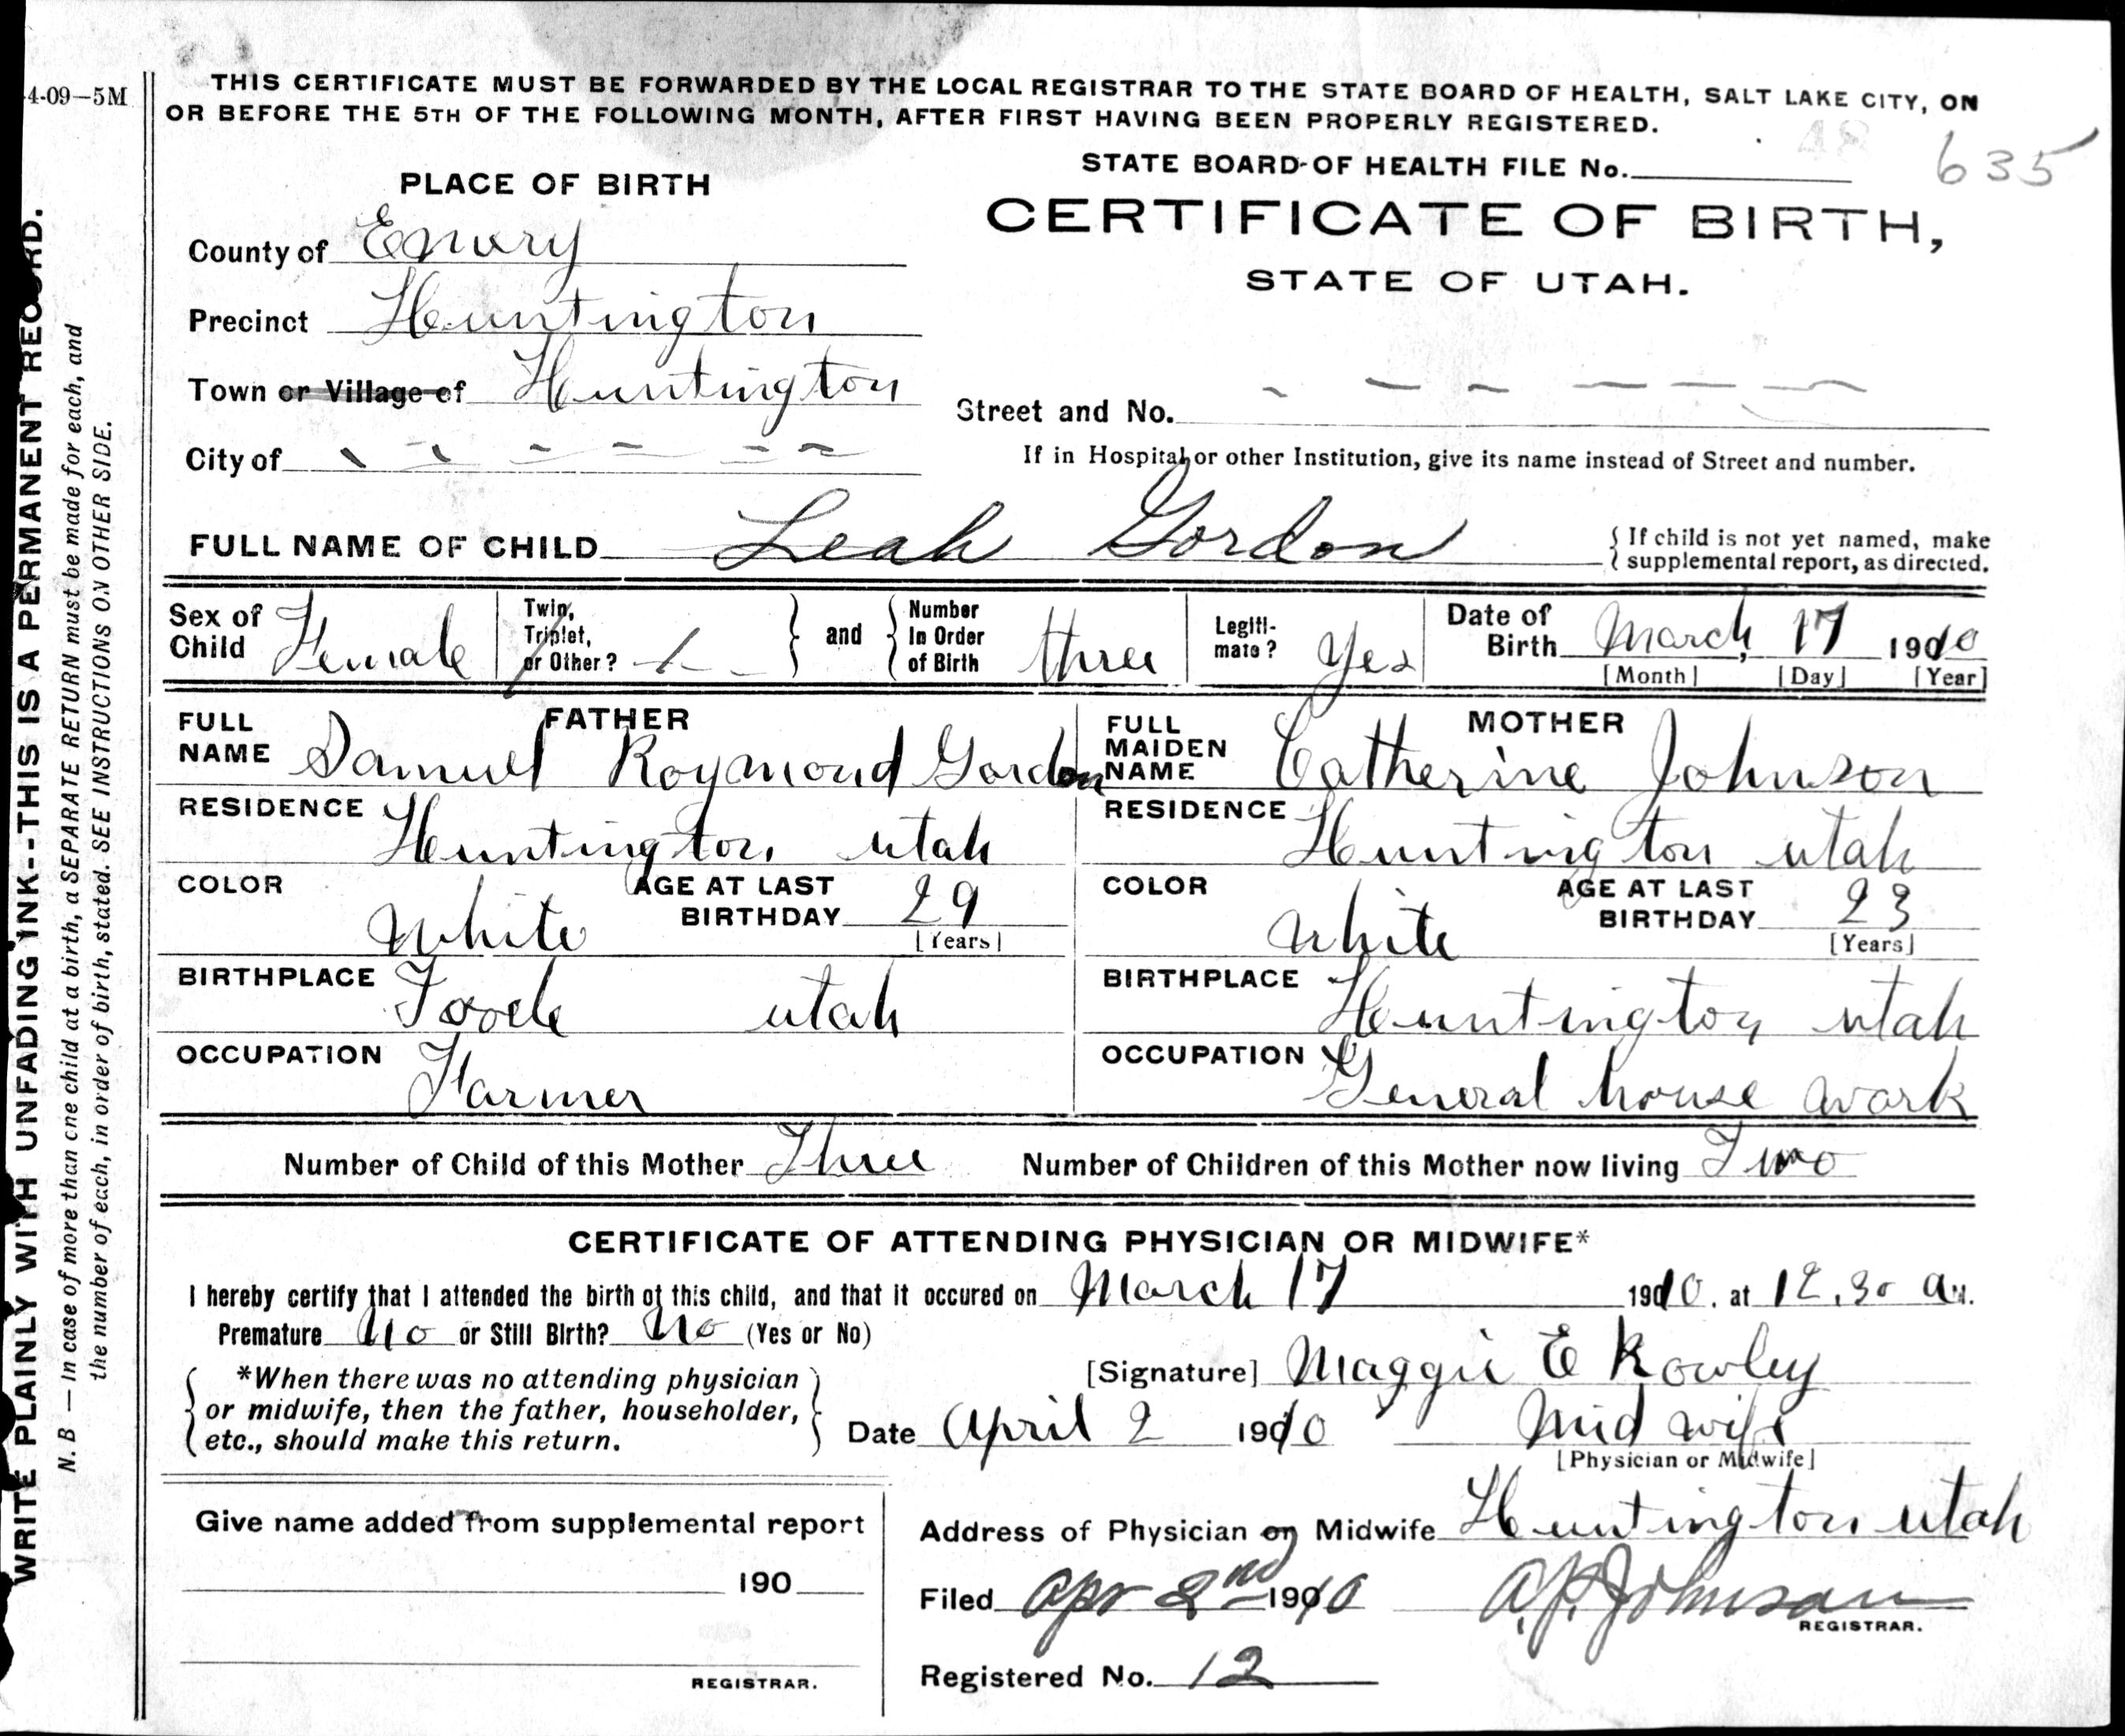 4-09—5M
THIS CERTIFICATE MUST BE FORWARDED BY THE LOCAL REGISTRAR TO THE STATE BOARD OF HEALTH, SALT LAKE CITY, ON
OR BEFORE THE 5TH OF THE FOLLOWING MONTH, AFTER FIRST HAVING BEEN PROPERLY REGISTERED.
48
STATE BOARD OF HEALTH FILE No. 635
PLACE OF BIRTH
CERTIFICATE OF BIRTH,
STATE OF UTAH.
County of Emery
Precinct Huntington
Town or Village of Huntington
Street and No. - - - - - -
City of - - - - - -
If in Hospital or other Institution, give its name instead of Street and number.
FULL NAME OF CHILD Leah Gordon
{ If child is not yet named, make
supplemental report, as directed.
Sex of Child Female
Twin, Triplet, or Other? } and { Number In Order of Birth three
Legiti-mate? Yes
Date of Birth March, 17 1910
[Month] [Day] [Year]
FATHER
FULL NAME Samuel Roymond Gordon
MOTHER
FULL MAIDEN NAME Catherine Johnson
RESIDENCE Huntington utah
RESIDENCE Huntington utah
COLOR White AGE AT LAST BIRTHDAY 29 [Years]
COLOR White AGE AT LAST BIRTHDAY 23 [Years]
BIRTHPLACE Tooele utah
BIRTHPLACE Huntington utah
OCCUPATION Farmer
OCCUPATION General house work
Number of Child of this Mother Three Number of Children of this Mother now living Two
CERTIFICATE OF ATTENDING PHYSICIAN OR MIDWIFE*
I hereby certify that I attended the birth of this child, and that it occured on March 17 1910. at 12.30 a M.
Premature No or Still Birth? No (Yes or No)
*When there was no attending physician
or midwife, then the father, householder,
etc., should make this return.
[Signature] Maggie E Rowley
Date April 2 1910 Mid wife
[Physician or Midwife]
Give name added from supplemental report
190
REGISTRAR.
Address of Physician or Midwife Huntington utah
Filed Apr 2nd 1910 A.P. Johnson
REGISTRAR.
Registered No. 12
WRITE PLAINLY WITH UNFADING INK--THIS IS A PERMANENT RECORD.
N. B — In case of more than one child at a birth, a SEPARATE RETURN must be made for each, and
the number of each, in order of birth, stated. SEE INSTRUCTIONS ON OTHER SIDE.